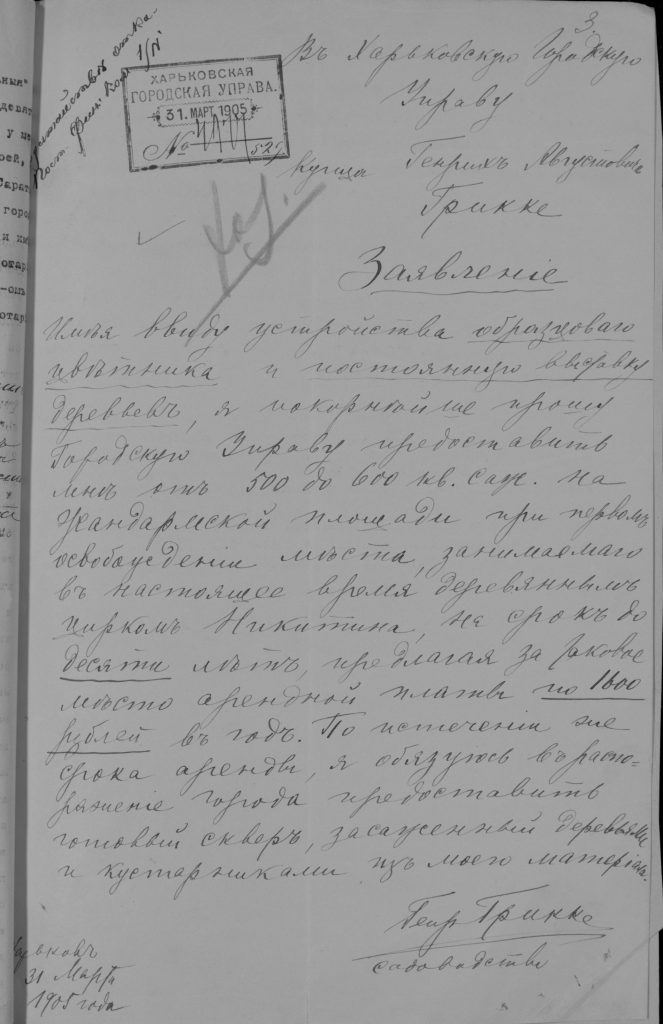 3.
Въ Харьковскую Городскую
Управу
ХАРЬКОВСКАЯ
ГОРОДСКАЯ УПРАВА.
31. МАРТ. 1905
№
Купца Генрихъ Августовичъ
Грикке
Заявленіе
Имѣя ввиду устройства образцоваго
цвѣтника и постоянную выставку
деревьевъ, я покорнѣйше прошу
Городскую Управу предоставить
мнѣ отъ 500 до 600 кв. саж. на
Жандармской площади при первомъ
освобожденіи мѣста, занимаемаго
въ настоящее время деревяннымъ
циркомъ Никитина, на срокъ до
десяти лѣтъ, предлагая за таковое
мѣсто арендной платы по 1600
рублей въ годъ. По истеченіи же
срока аренды, я обязуюсь въ распо-
ряженіе города предоставить
готовый скверъ, засаженный деревьями
и кустарниками изъ моего матеріала.
Генр Грикке
садоводство
ьковъ
31 Марта
1905 года